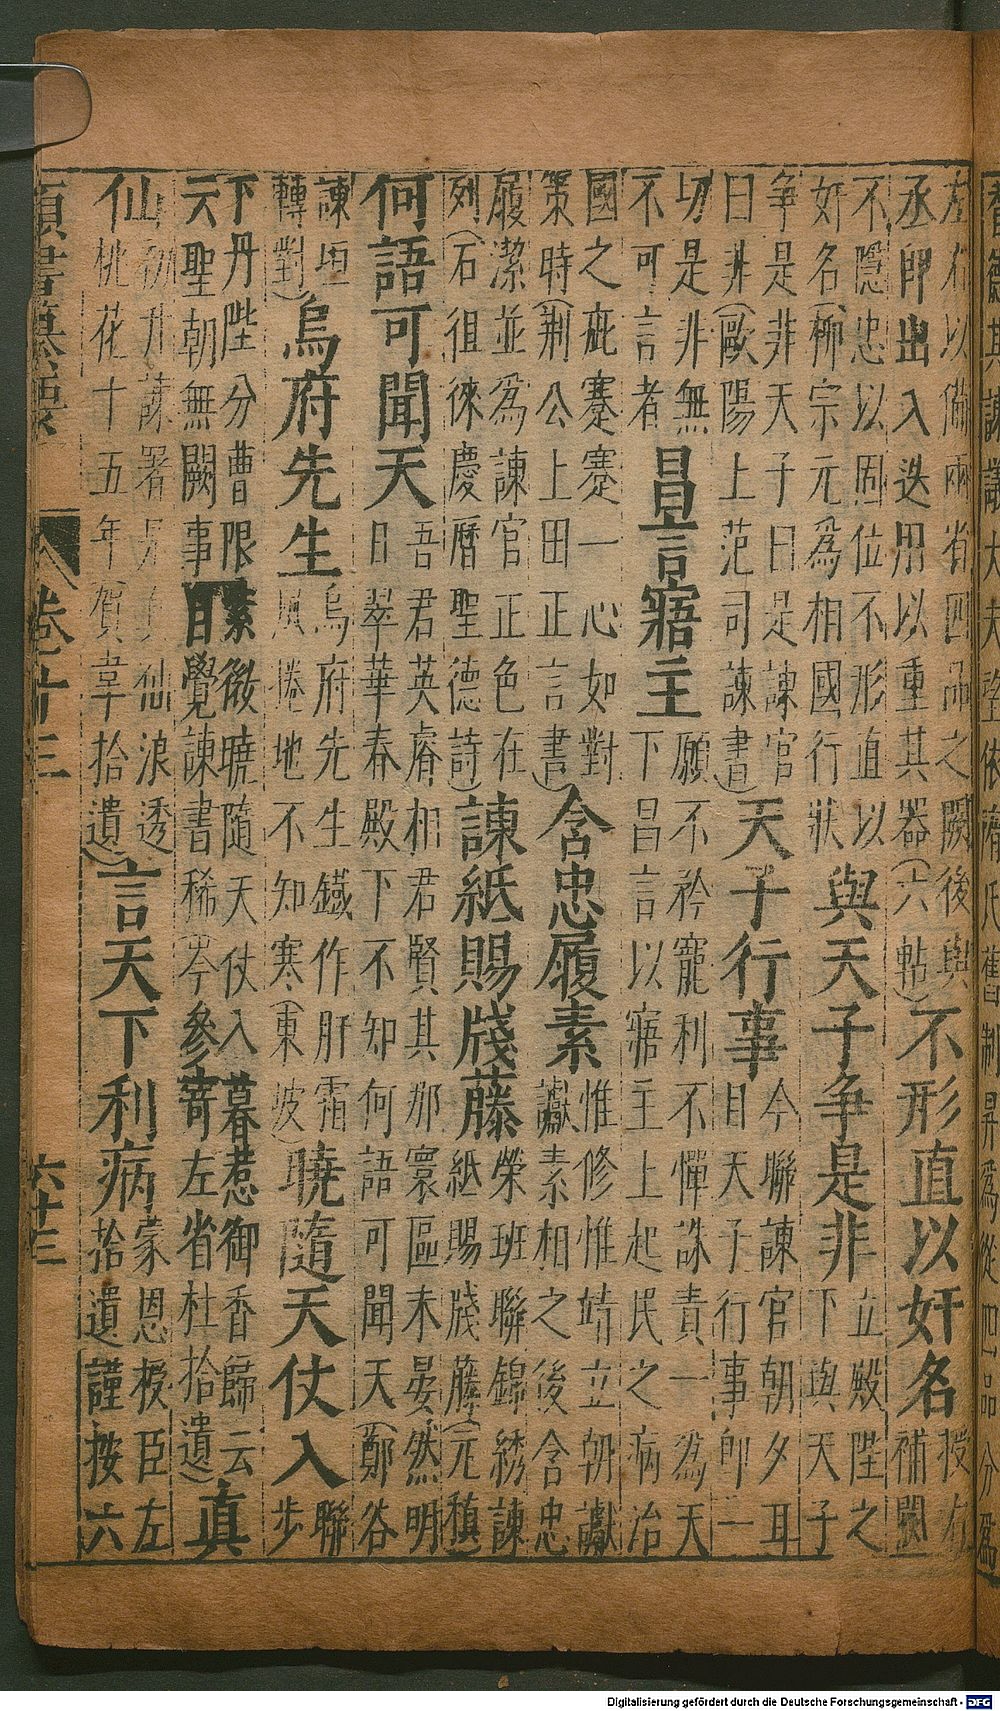 諫議大夫 依隋氏舊制昇為從四品分為
左右以備兩省四品之闕後與丞郎出入迭用以重其器(六帖)不形直以奸名授右補闕
不隱忠以固位不形直以奸名(柳宗元為相國行狀與天子争是非立殿陛之下與天子
争是非天子曰是諫官曰非(歐陽上范司諫書)天子行事今聯諫官朝夕耳目天子行事即一
切是非無不可言者昌言寤主願不衿寵利不憚誅責一為天下昌言以寤主上起民之病治
國之疵蹇蹇一心如對策時(荆公上田正言書)含忠履素惟修惟靖立朝讞讞素相之後含忠
履潔並為諫官正色在列(石徂徠慶曆聖德詩)諫紙賜牋藤榮班聯錦綉諫紙賜牋藤(元稹
何語可聞天吾君英睿相君賢其那寰區未晏然明日翠華春殿下不知何語可聞天(鄭谷
諫垣轉對)烏府先生烏府先生鐵作肝霜風捲地不知寒(東坡)曉隨天仗入聯步
下丹陛分曹限紫微曉隨天仗入暮惹御香歸云云聖朝無闕事自覺諫書稀(岑參寄左省杜拾遺)真
仙初升諫署是真仙浪透桃花十五年(賀韋拾遺)言天下利病蒙恩授臣左拾遺謹按六
類書纂要 卷廿三 六十三
Digitalisierung gefördert durch die Deutsche Forschungsgemeinschaft - DFG